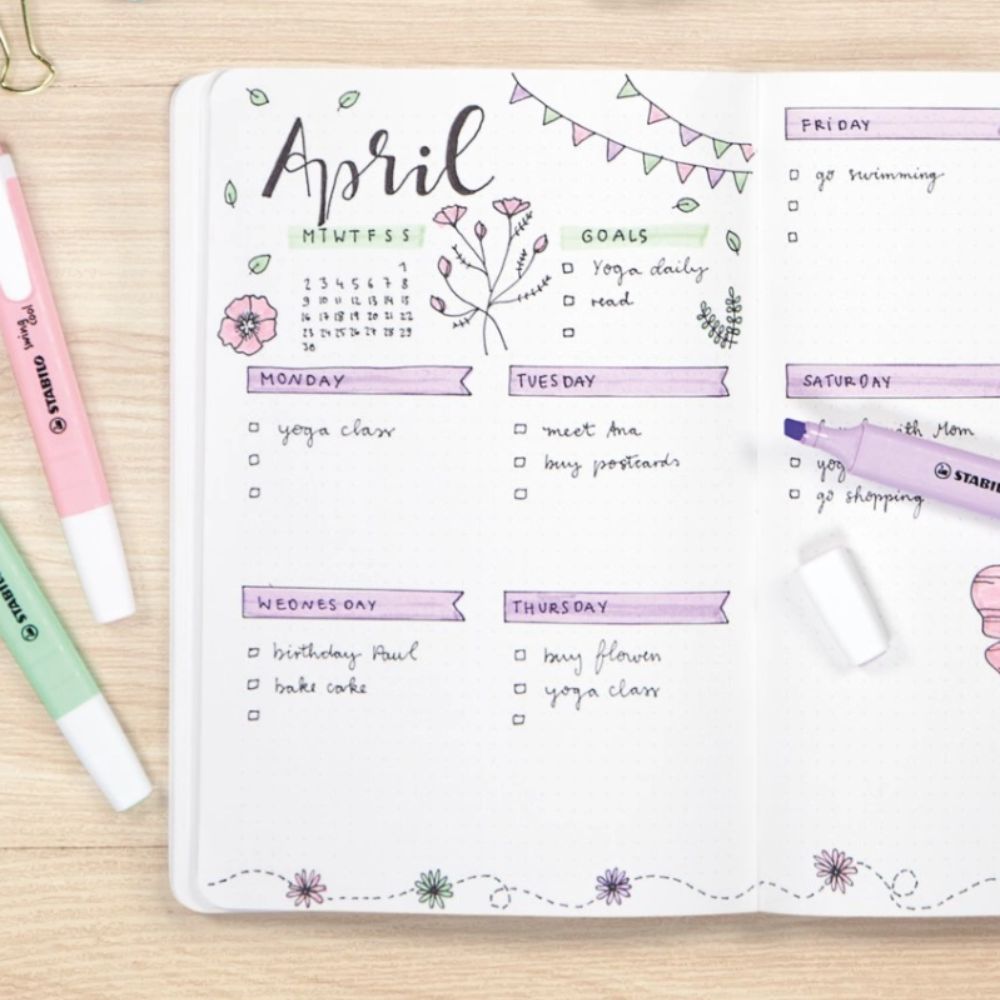 April
M T W T F S S
1
2 3 4 5 6 7 8
9 10 11 12 13 14 15
16 17 18 19 20 21 22
23 24 25 26 27 28 29
30
GOALS
Yoga daily
read
MONDAY
yoga class
TUESDAY
meet Ana
buy postcards
WEDNESDAY
birthday Paul
bake cake
THURSDAY
buy flowers
yoga class
FRIDAY
go swimming
SATURDAY
with Mom
go shopping
STABILO swing cool
STABILO
STABIL